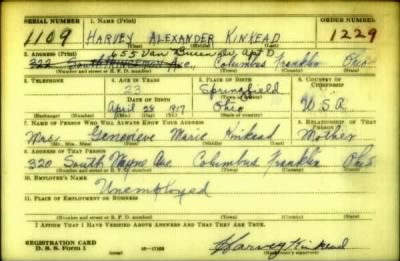 SERIAL NUMBER 1. NAME (Print) ORDER NUMBER
1109 HARVEY ALEXANDER KINKEAD 1229
(First) (Middle) (Last)
655 Van Buren Dr. Apt D
2. ADDRESS (Print)
322 South Ave., Columbus Franklin Ohio
(Number and street or R. F. D. number) (Town) (County) (State)
3. TELEPHONE 4. AGE IN YEARS 5. PLACE OF BIRTH 6. COUNTRY OF CITIZENSHIP
23 Springfield
DATE OF BIRTH (Town or county)
April 28 1917 Ohio U.S.A
(Exchange) (Number) (Mo.) (Day) (Yr.) (State or country)
7. NAME OF PERSON WHO WILL ALWAYS KNOW YOUR ADDRESS 8. RELATIONSHIP OF THAT PERSON
Mrs. Genevieve Marie Kinkead Mother
(Mr., Mrs., Miss) (First) (Middle) (Last)
9. ADDRESS OF THAT PERSON
320 South Wayne Ave Columbus Franklin Ohio
(Number and street or R. F. D. number) (Town) (County) (State)
10. EMPLOYER'S NAME
Unemployed
11. PLACE OF EMPLOYMENT OR BUSINESS
(Number and street or R. F. D. number) (Town) (County) (State)
I AFFIRM THAT I HAVE VERIFIED ABOVE ANSWERS AND THAT THEY ARE TRUE.
REGISTRATION CARD
D. S. S. Form 1 Harvey Kinkead
(Registrant's signature)